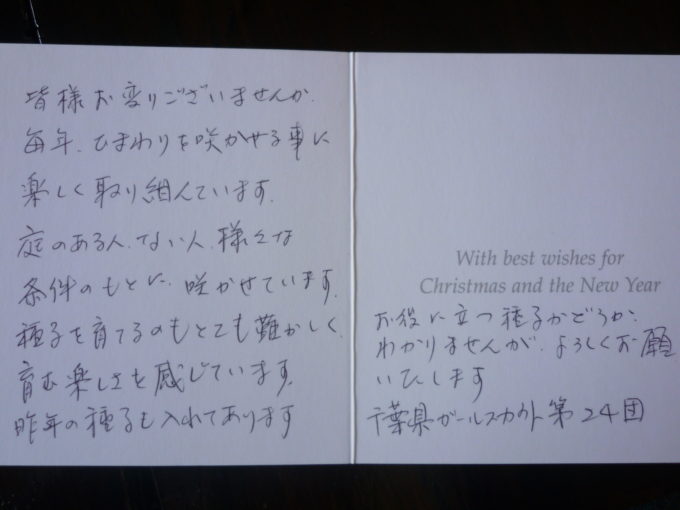 皆様お変りございませんか.
毎年、ひまわりを咲かせる事に
楽しく取り組んでいます.
庭のある人.ない人.様々な
条件のもとに、咲かせています.
種子を育てるのもとても難かしく、
育む楽しさを感じています.
昨年の種子も入れてあります
With best wishes for
Christmas and the New Year
お役に立つ種子かどうか、
わかりませんが、よろしくお願
いいします
千葉県ガールスカウト第24団